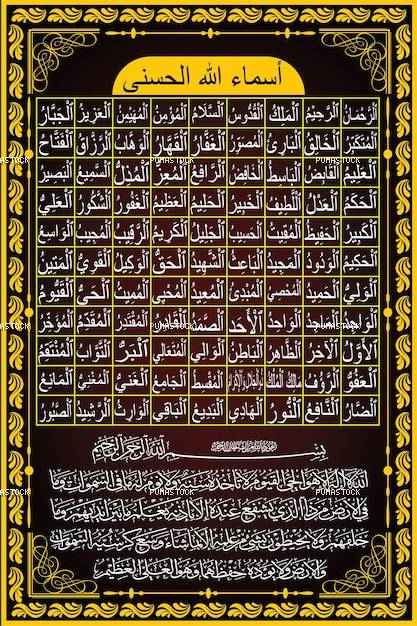 أسماء الله الحسنى
الرَّحْمَانُ الرَّحِيْمُ الْمَلِكُ الْقُدُّوسُ السَّلَامُ الْمُؤْمِنُ الْمُهَيْمِنُ الْعَزِيزُ الْجَبَّارُ
الْمُتَكَبِّرُ الْخَالِقُ الْبَارِئُ الْمُصَوِّرُ الْغَفَّارُ الْقَهَّارُ الْوَهَّابُ الرَّزَّاقُ الْفَتَّاحُ
الْعَلِيمُ الْقَابِضُ الْبَاسِطُ الْخَافِضُ الرَّافِعُ الْمُعِزُّ الْمُذِلُّ السَّمِيعُ الْبَصِيرُ
الْحَكَمُ الْعَدْلُ اللَّطِيفُ الْخَبِيرُ الْحَلِيمُ الْعَظِيمُ الْغَفُورُ الشَّكُورُ الْعَلِيُّ
الْكَبِيرُ الْحَفِيظُ الْمُقِيتُ الْحَسِيبُ الْجَلِيلُ الْكَرِيمُ الرَّقِيبُ الْمُجِيبُ الْوَاسِعُ
الْحَكِيمُ الْوَدُودُ الْمَجِيدُ الْبَاعِثُ الشَّهِيدُ الْحَقُّ الْوَكِيلُ الْقَوِيُّ الْمَتِينُ
الْوَلِيُّ الْحَمِيدُ الْمُحْصِي الْمُبْدِئُ الْمُعِيدُ الْمُحْيِي الْمُمِيتُ الْحَيُّ الْقَيُّومُ
الْوَاجِدُ الْمَاجِدُ الْوَاحِدُ الْأَحَدُ الصَّمَدُ الْقَادِرُ الْمُقْتَدِرُ الْمُقَدِّمُ الْمُؤَخِّرُ
الْأَوَّلُ الْآخِرُ الظَّاهِرُ الْبَاطِنُ الْوَالِي الْمُتَعَالِي الْبَرُّ التَّوَّابُ الْمُنْتَقِمُ
الْعَفُوُّ الرَّؤُفُ مَالِكُ الْمُلْكِ ذُو الْجَلَالِ وَالْإِكْرَامِ الْمُقْسِطُ الْجَامِعُ الْغَنِيُّ الْمُغْنِيُ الْمَانِعُ
الضَّارُ النَّافِعُ النُّورُ الْهَادِي الْبَدِيعُ الْبَاقِي الْوَارِثُ الرَّشِيدُ الصَّبُورُ
بِسْمِ اللهِ الرَّحْمَنِ الرَّحِيمِ
اللَّهُ لَا إِلَهَ إِلَّا هُوَ الْحَيُّ الْقَيُّومُ لَا تَأْخُذُهُ سِنَةٌ وَلَا نَوْمٌ لَهُ مَا فِي السَّمَوَاتِ وَمَا
فِي الْأَرْضِ مَنْ ذَا الَّذِي يَشْفَعُ عِنْدَهُ إِلَّا بِإِذْنِهِ يَعْلَمُ مَا بَيْنَ أَيْدِيهِمْ وَمَا
خَلْفَهُمْ وَلَا يُحِيطُونَ بِشَيْءٍ مِنْ عِلْمِهِ إِلَّا بِمَا شَاءَ وَسِعَ كُرْسِيُّهُ السَّمَوَاتِ
وَالْأَرْضَ وَلَا يَئُودُهُ حِفْظُهُمَا وَهُوَ الْعَلِيُّ الْعَظِيمُ
PUMASTOCK